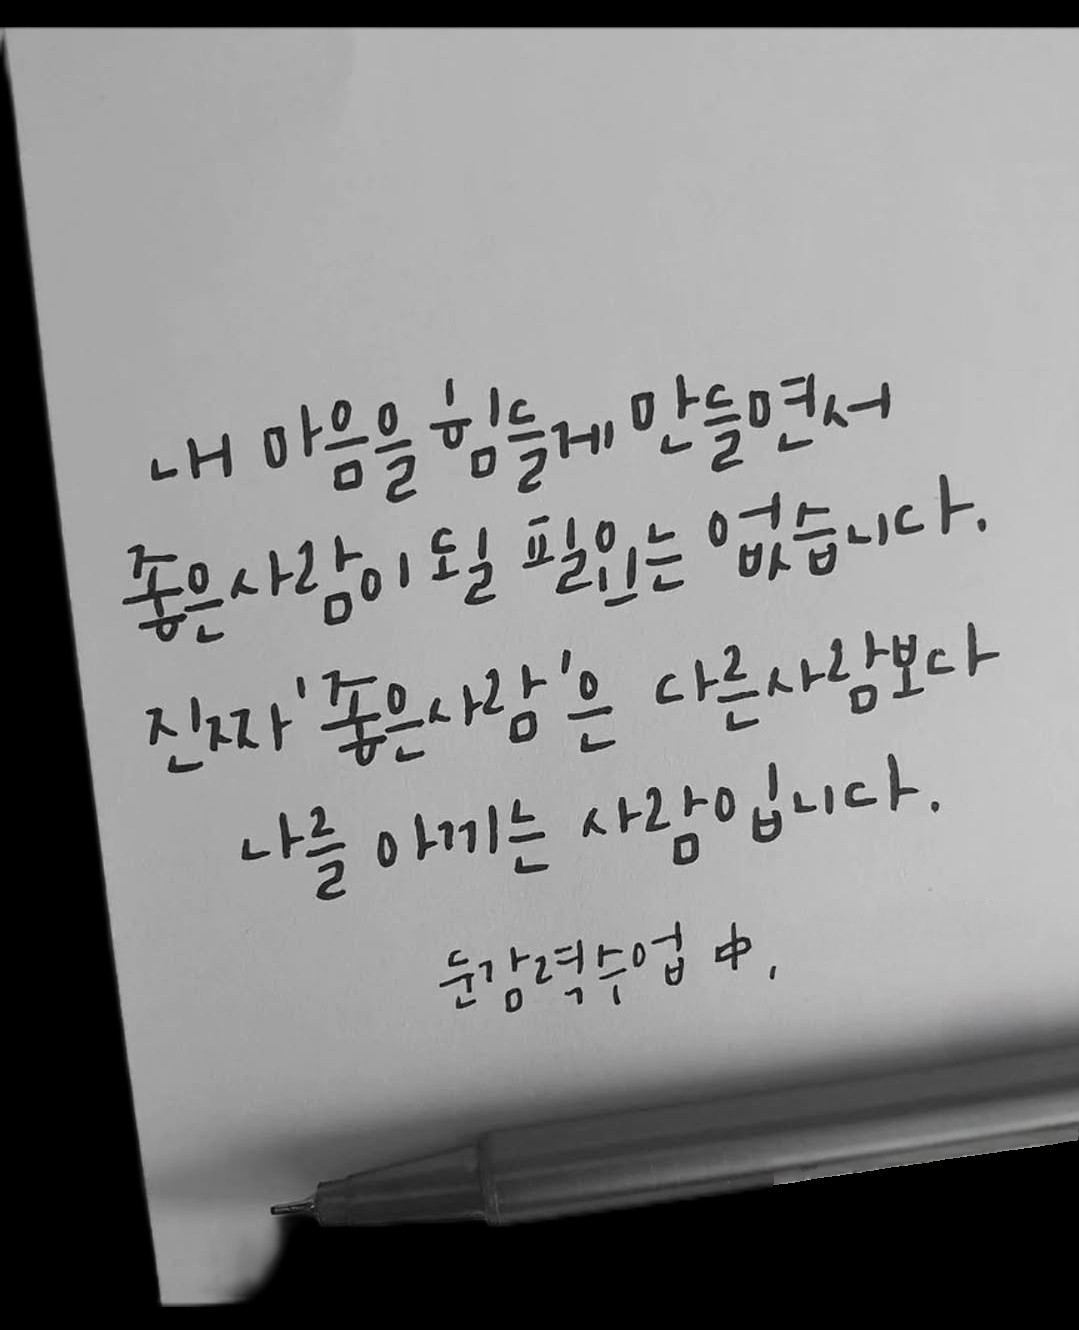 내 마음을 힘들게 만들면서
좋은사람이 될 필인는 없습니다.
진짜 '좋은사람'은 다른사람보다
나를 아끼는 사람입니다.
둔감력수업 中,